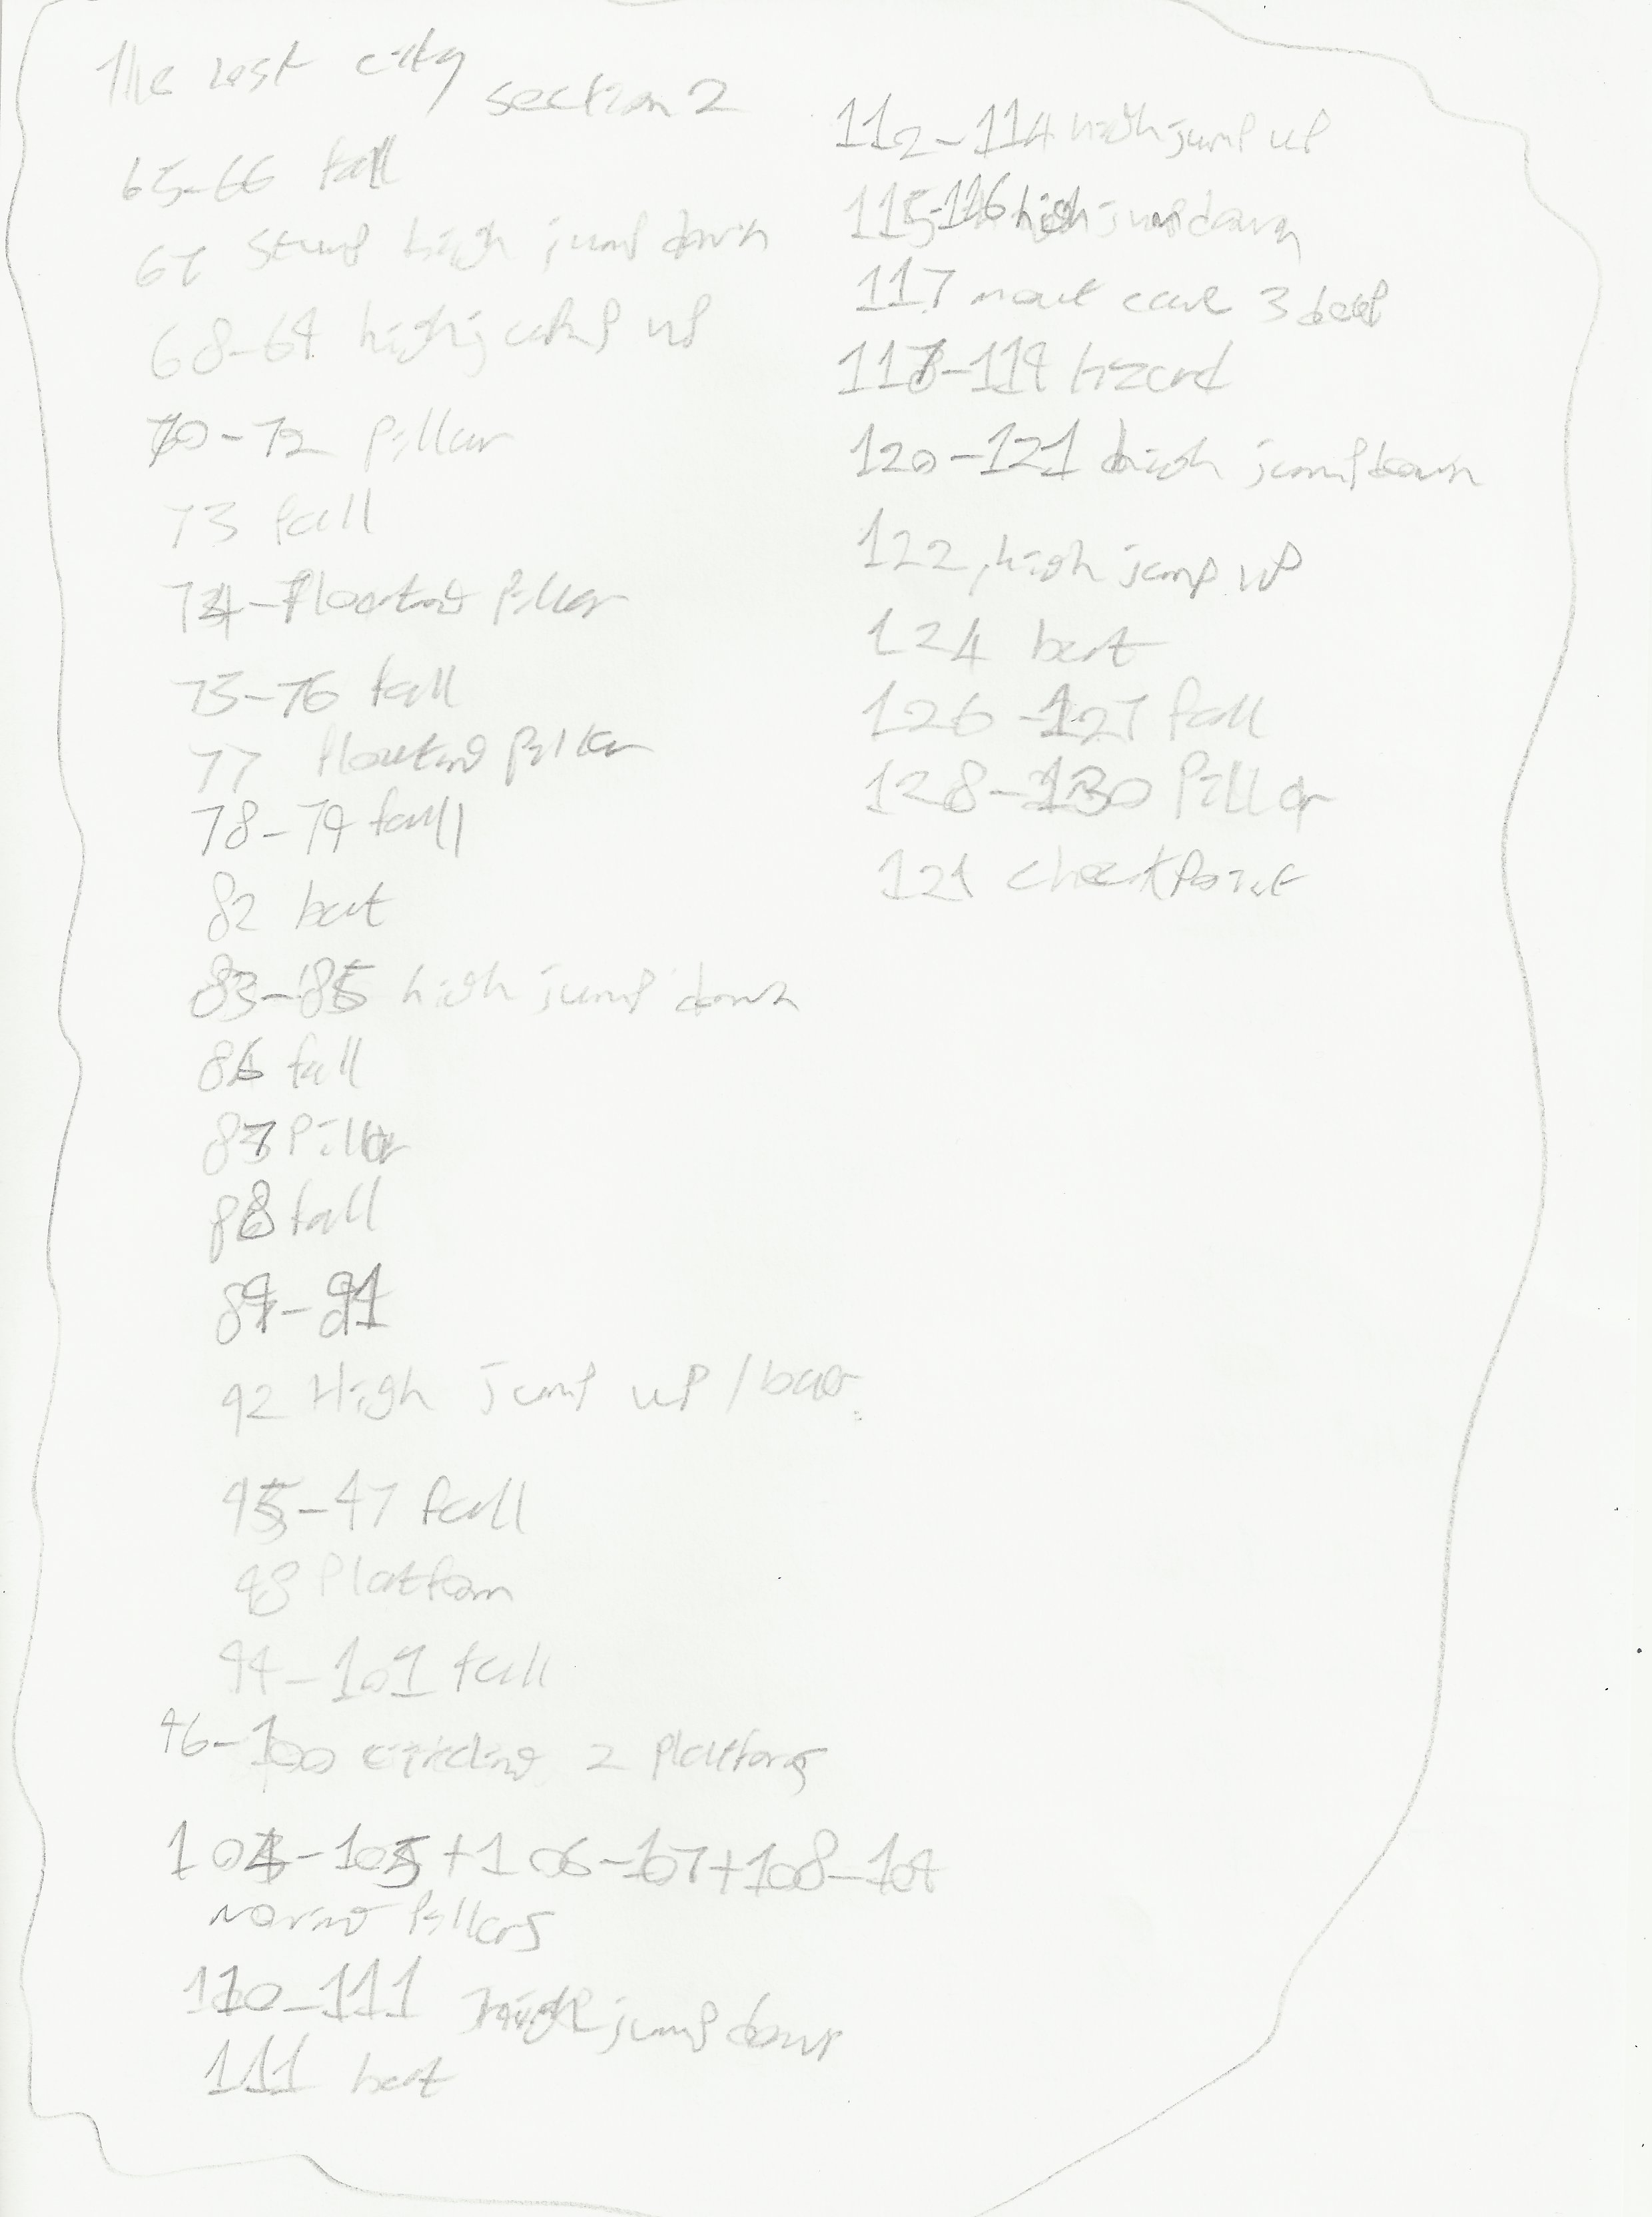 The Lost city section 2
65-66 fall
67 stump high jump down
68-69 high jump up
70-72 pillar
73 fall
74-floating pillar
75-76 fall
77 floating pillar
78-79 fall
82 bat
83-85 high jump down
86 fall
87 Pillar
88 fall
89-91
92 High jump up /
95-97 fall
98 Platform
99-101 fall
96-100 circling 2 platforms
104-105+106-107+108-109
moving pillars
110-111 high jump down
111 bat
112-114 high jump up
115-116 high jump down
117 3 deep
118-119 lizard
120-121 high jump down
122 high jump up
124 bat
126-127 fall
128-130 Pillar
121 checkpoint